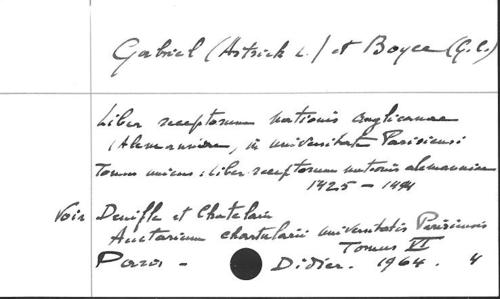 Gabriel (Astrick L.) et Boyce (G.C.)
Liber receptorum nationis anglicanae
(Alemanniae, in universitate Parisiensi
Tomus unicus : Liber receptorum nationis alemanniae
1425 - 1494
Voir Denifle et Chatelain
Auctarium chartularii universitatis Parisiensis
Tomus VI
Paris - Didier. 1964. 4